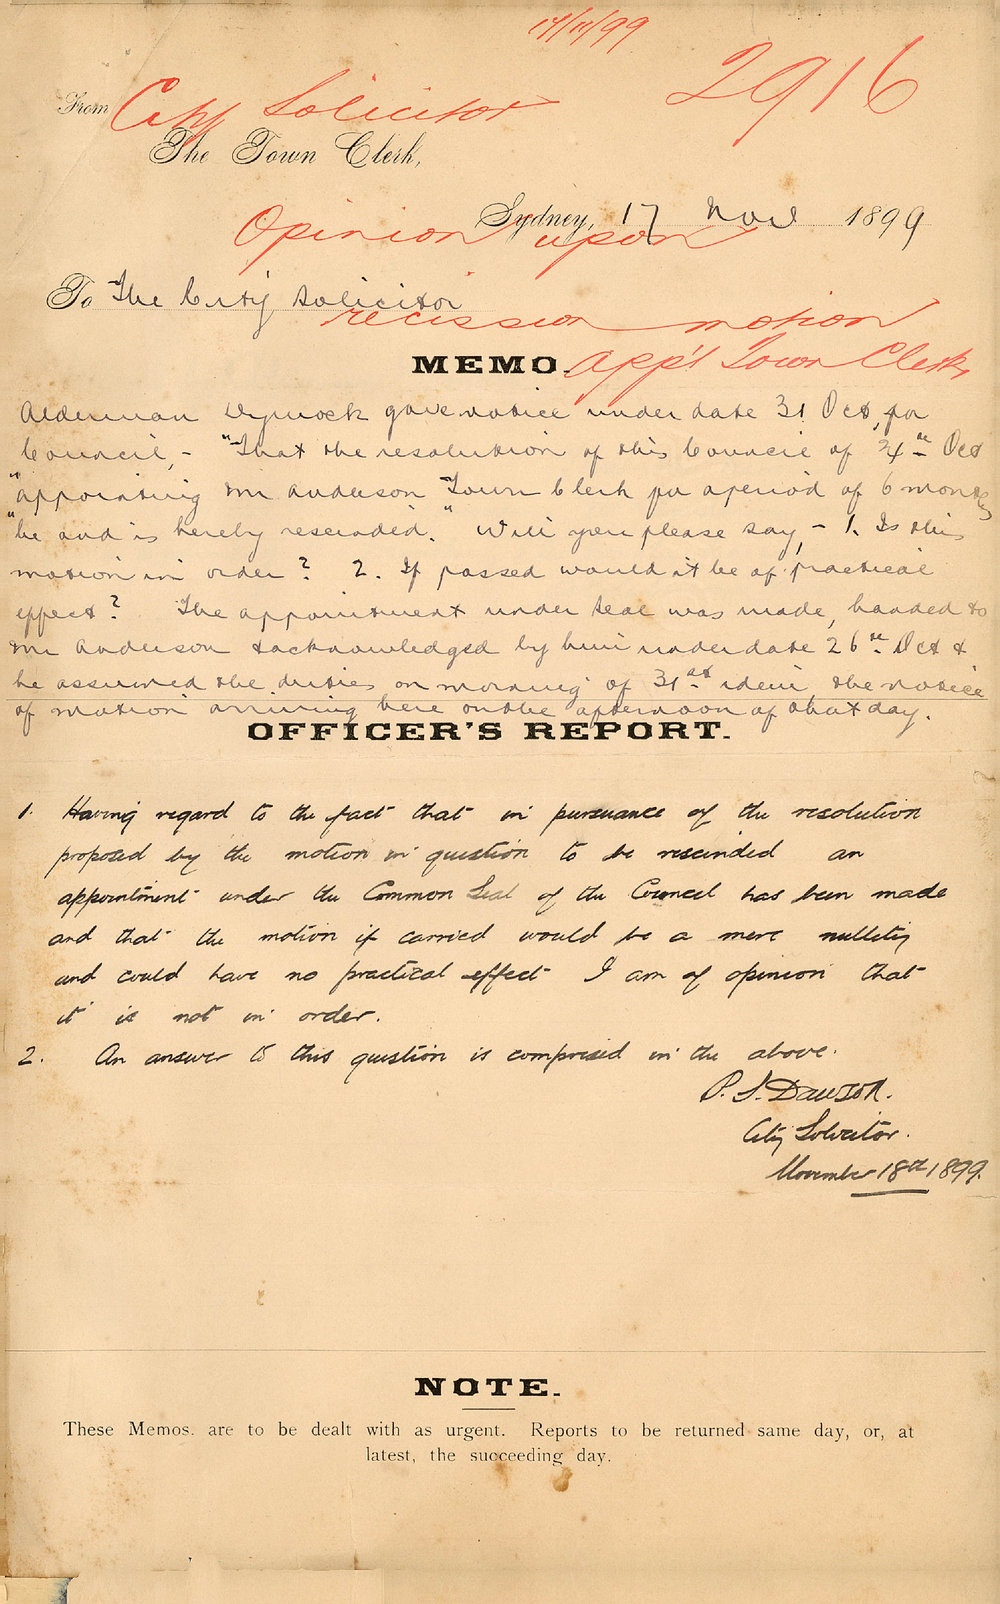 17/11/99
2916
From City Solicitor
The Town Clerk,
Sydney, 17 Nov 1899
Opinion upon
To The City Solicitor
recission motion
MEMO.
app't Town Clerk
Alderman Dymock gave notice under date 31 Oct, for
Council, - "That the resolution of this Council of 24th Oct
"appointing Mr Anderson Town Clerk for a period of 6 months
"be and is hereby rescinded." Will you please say, - 1. Is this
motion in order? 2. If passed would it be of practical
effect? The appointment under seal was made, handed to
Mr Anderson & acknowledged by him under date 26th Oct &
he assumed the duties on morning of 31st idem, the notice
of motion arriving here on the afternoon of that day.
OFFICER'S REPORT.
1. Having regard to the fact that in pursuance of the resolution
proposed by the motion in question to be rescinded an
appointment under the Common Seal of the Council has been made
and that the motion if carried would be a mere nullity
and could have no practical effect I am of opinion that
it is not in order.
2. An answer to this question is comprised in the above.
City Solicitor.
November 18th 1899.
NOTE.
These Memos. are to be dealt with as urgent. Reports to be returned same day, or, at
latest, the succeeding day.